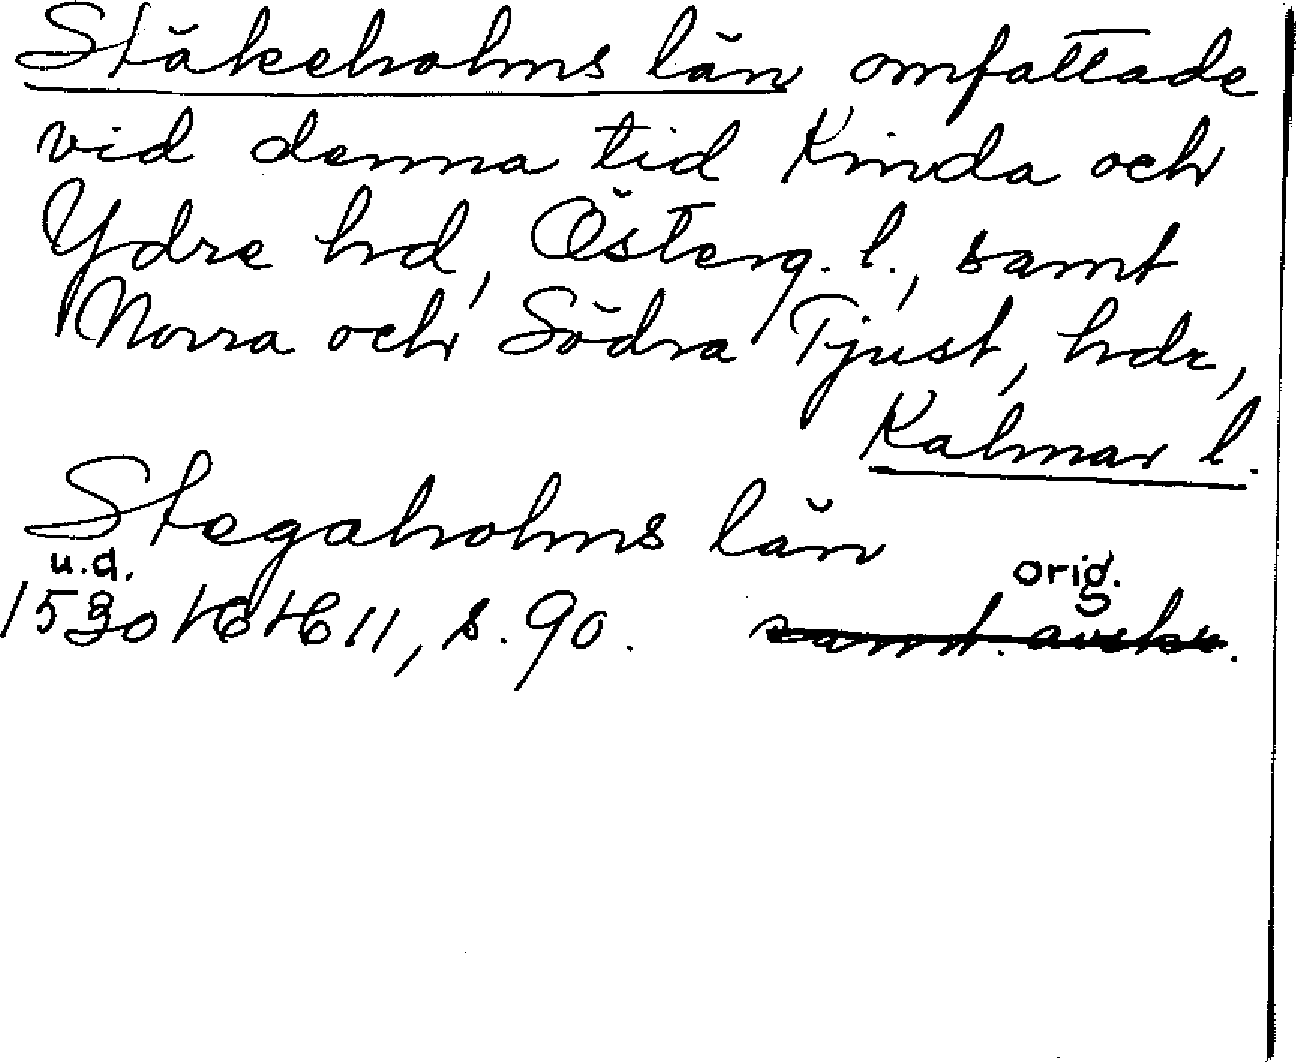 Stäkeholms län omfattade
vid denna tid Kinda och
Ydre hd, Österg. l., samt
Norra och Södra Tjust, hdr,
Kalmar l.
Stegaholms län
u.d. orig.
1530 HH 11, s. 90. samt. avskr.